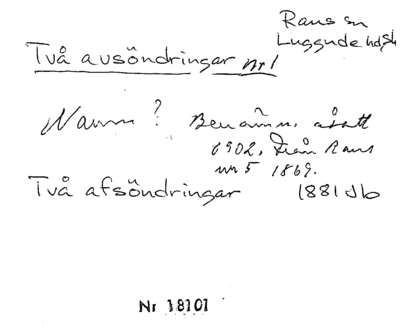 Raus sn
Luggude hd, sk
Två avsöndringar nr 1
Namn? Benämn. åsatt
1902. Från Raus
nr 5 1869.
Två afsöndringar 1881 Jb
Nr 18101